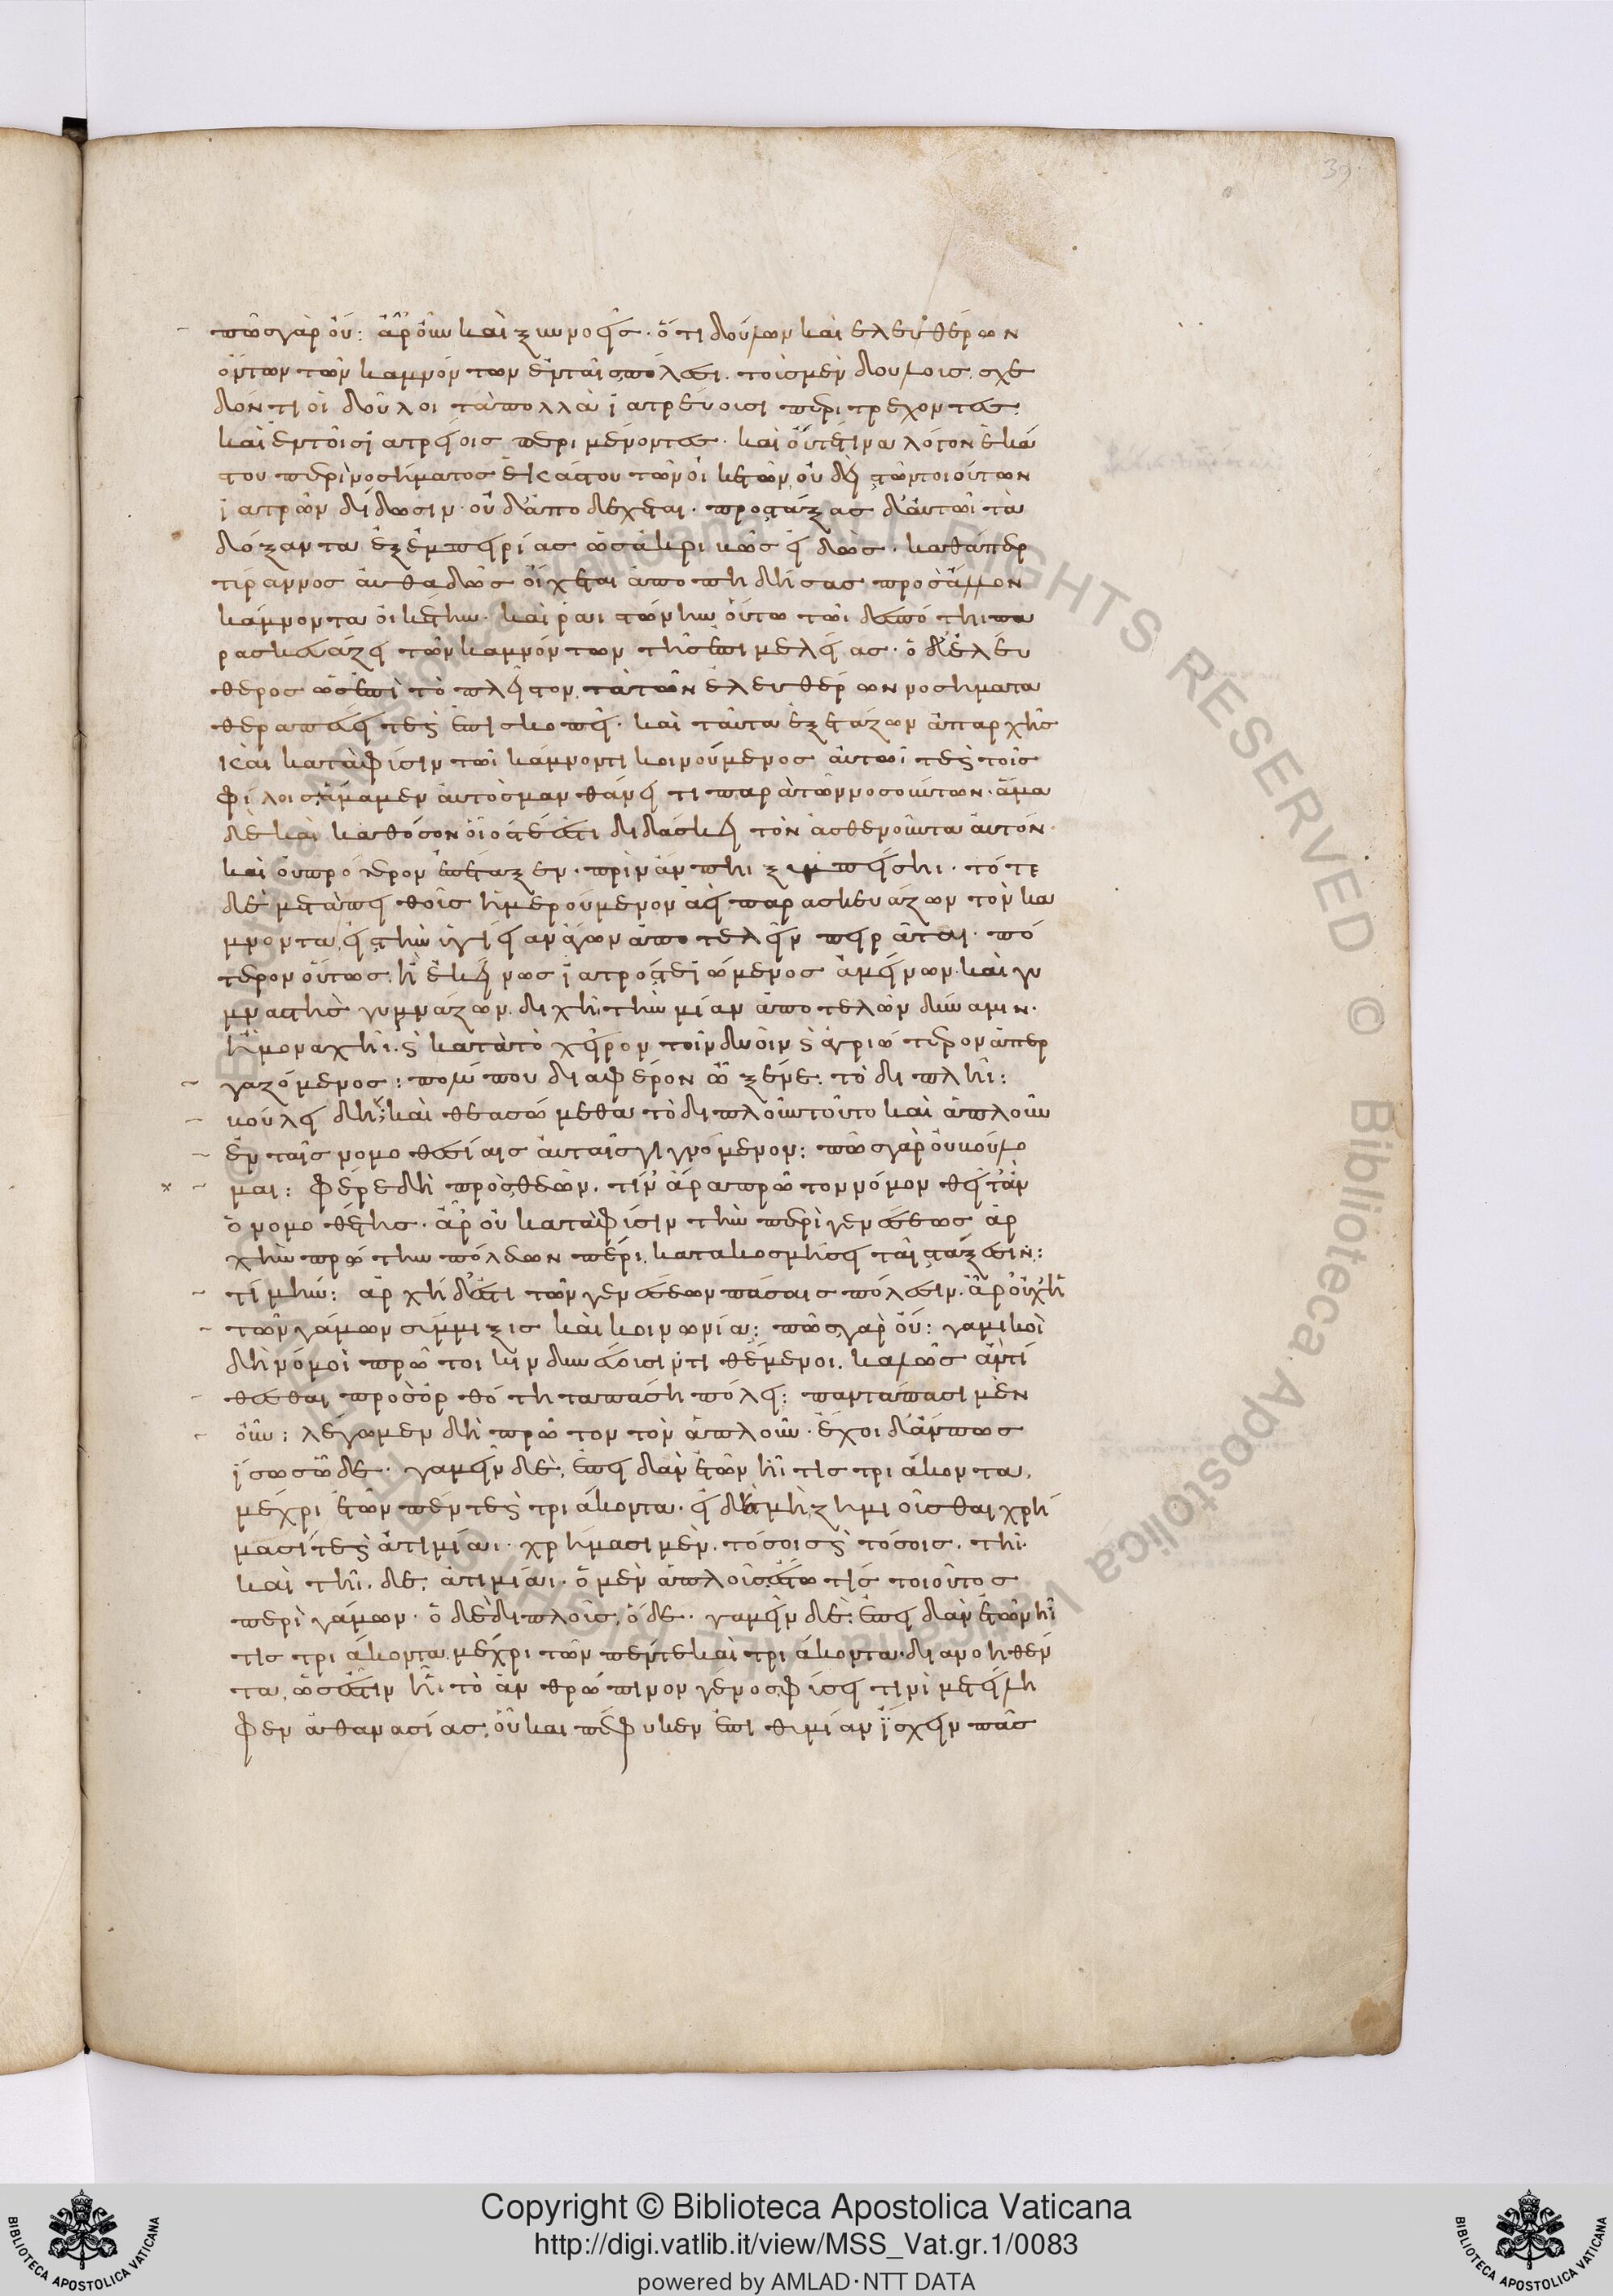 39
πῶς γὰρ οὔ: ἆρ' οὖν καὶ ξυννοεῖς· ὅτι δούλων καὶ ἐλευθέρων
ὄντων τῶν καμνόντων ἐν ταῖς πόλεσι. τοὺς μὲν δούλους σχε
δόν τι οἱ δοῦλοι τὰ πολλὰ ἰατρεύουσι περιτρέχοντες.
καὶ ἐν τοῖς ἰατρείοις περιμένοντες· καὶ οὔτε τινα λόγον ἑκά
στου περὶ νοσήματος ἑκάστου τῶν οἰκετῶν οὐδεὶς τῶν τοιούτων
ἰατρῶν δίδωσιν· οὐδ' ἀποδέχεται· προστάξας δ' αὐτῶι τὰ
δόξαντα ἐξ ἐμπειρίας ὡς ἀκριβῶς εἰδώς· καθάπερ
τύραννος αὐθαδῶς οἴχεται ἀποπηδήσας πρὸς ἄλλον
κάμνοντα οἰκέτην· καὶ ῥαιστώνην οὕτω τῶι δεσπότηι πα
ρασκευάζει τῶν καμνόντων τῆς ἐπιμελείας· ὁ δ' ἐλεύ
θερος ὡς ἐπὶ τὸ πλεῖστον τὰ τῶν ἐλευθέρων νοσήματα
θεραπεύει τε καὶ ἐπισκοπεῖ· καὶ ταῦτα ἐξετάζων ἀπ' ἀρχῆς
καὶ κατὰ φύσιν τῶι κάμνοντι κοινούμενος αὐτῶι τε καὶ τοῖς
φίλοις. ἅμα μὲν αὐτὸς μανθάνει τι παρὰ τῶν νοσούντων· ἅμα
δὲ καὶ καθ' ὅσον οἷός τέ ἐστι διδάσκει τὸν ἀσθενοῦντα αὐτόν·
καὶ οὐ πρότερον ἐπέταξεν· πρὶν ἄν πηι ξυμπείσηι· τότε
δὲ μετὰ πειθοῦς ἡμερούμενον ἀεὶ παρασκευάζων τὸν κά
μνοντα, εἰς τὴν ὑγίειαν ἄγων ἀποτελεῖν πειρᾶται· πό
τερον οὕτως ἢ ἐκείνως ἰατρός τε ἰώμενος ἀμείνων· καὶ γυ
μναστὴς γυμνάζων. διχῆι τὴν μίαν ἀποτελῶν δύναμιν·
ἢ μοναχῆι· καὶ κατὰ τὸ χεῖρον τοῖν δυοῖν καὶ ἀγριώτερον ἀπερ
γαζόμενος: πολύ που διαφέρον ὦ ξένε. τὸ διπλῆι:
βούλει δή; καὶ θεασώμεθα τὸ διπλοῦν τοῦτο καὶ ἁπλοῦν
ἐν ταῖς νομοθεσίαις αὐταῖς γιγνόμενον: πῶς γὰρ οὐ βούλο
μαι: φέρε δὴ πρὸς θεῶν. τίν' ἄρα πρῶτον νόμον θεῖτ' ἂν
ὁ νομοθέτης· ἆρ' οὐ κατὰ φύσιν τὴν περὶ γενέσεως ἀρ
χὴν πρώτην πόλεων πέρι κατακοσμήσει ταῖς τάξεσιν:
τί μήν: ἀρχὴ δ' ἐστὶ τῶν γενέσεων πάσαις πόλεσιν. ἆρ' οὐχ ἡ
τῶν γάμων σύμμιξις καὶ κοινωνία: πῶς γὰρ οὔ: γαμικοὶ
δὴ νόμοι πρῶτοι κινδυνεύουσιν τιθέμενοι. καλῶς ἂν τί
θεσθαι πρὸς ὀρθότητα πάσηι πόλει: παντάπασι μὲν
οὖν: λέγωμεν δὴ πρῶτον τὸν ἁπλοῦν· ἔχοι δ' ἄν πως
ἴσως ὧδε· γαμεῖν δὲ, ἐπειδὰν ἐτῶν ἦι τις τριάκοντα,
μέχρι ἐτῶν πέντε καὶ τριάκοντα· εἰ δὲ μὴ ζημιοῦσθαι χρή
μασί τε καὶ ἀτιμίαι· χρήμασι μὲν. τόσοις καὶ τόσοις. τῆι
καὶ τῆι. δὲ, ἀτιμίαι· ὁ μὲν ἁπλοῦς ἔστω τις τοιοῦτος
περὶ γάμων· ὁ δὲ διπλοῦς, ὅδε· γαμεῖν δὲ, ἐπειδὰν ἐτῶν ἦι
τις τριάκοντα μέχρι τῶν πέντε καὶ τριάκοντα· διανοηθέν
τα, ὡς ἔστιν ἧι τὸ ἀνθρώπινον γένος φύσει τινὶ μετείλη
φεν ἀθανασίας. οὗ καὶ πέφυκεν ἐπιθυμίαν ἴσχειν πᾶς
© Biblioteca Apostolica Vaticana ALL RIGHTS RESERVED
Copyright © Biblioteca Apostolica Vaticana
http://digi.vatlib.it/view/MSS_Vat.gr.1/0083
powered by AMLAD·NTT DATA
BIBLIOTECA APOSTOLICA VATICANA
BIBLIOTECA APOSTOLICA VATICANA